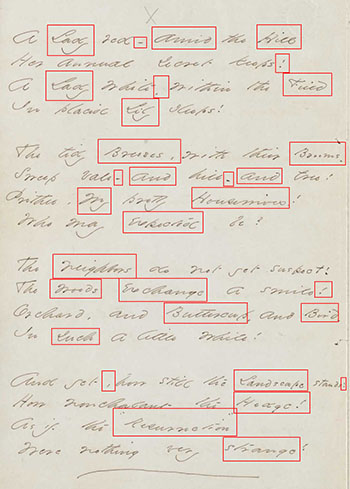 A Lady red - Amid the Hill
Her Annual Secret keeps!
A Lady white, within the Field
In placid Lily sleeps!
The tidy Breezes, with their Brooms,
Sweep vale - and hill - and tree!
Prithee, My pretty Housewives!
Who may expected be?
The neighbors do not yet suspect!
The Woods Exchange a smile!
Orchard, and Buttercup, and Bird
In Such a little while!
And yet, how still the Landscape stands!
How nonchalant the Hedge!
As if the "Resurrection"
Were nothing very strange!